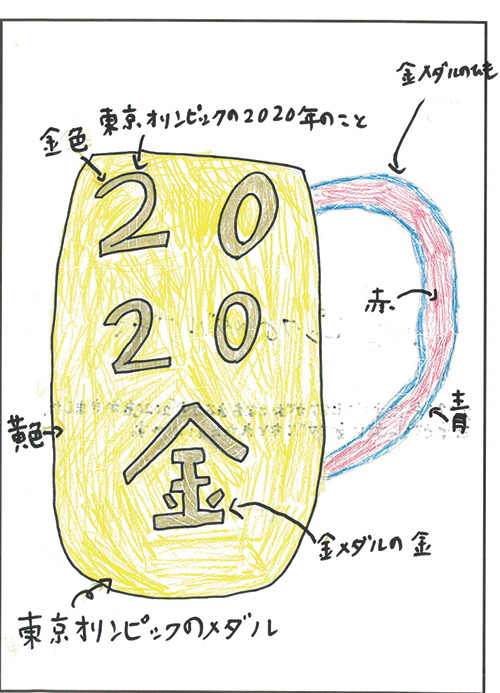 金メダルのひも
東京オリンピックの2020年のこと
金色
20
20
赤
青
黄色
金
金メダルの金
東京オリンピックのメダル